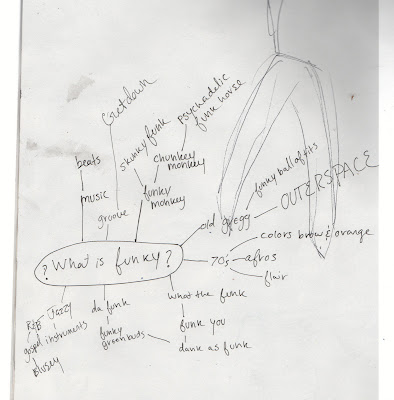 Getdown
psychadelic
funk house
skunky funk
chunkey
monkey
beats
music
groove
funky
monkey
old gregg
funky ball of tits
OUTERSPACE
? What is funky?
70's
colors brow & orange
afros
flair
R&B
Jazzy
gospel instruments
bluesy
da funk
funky
greenbuds
what the funk
funk you
dank as funk